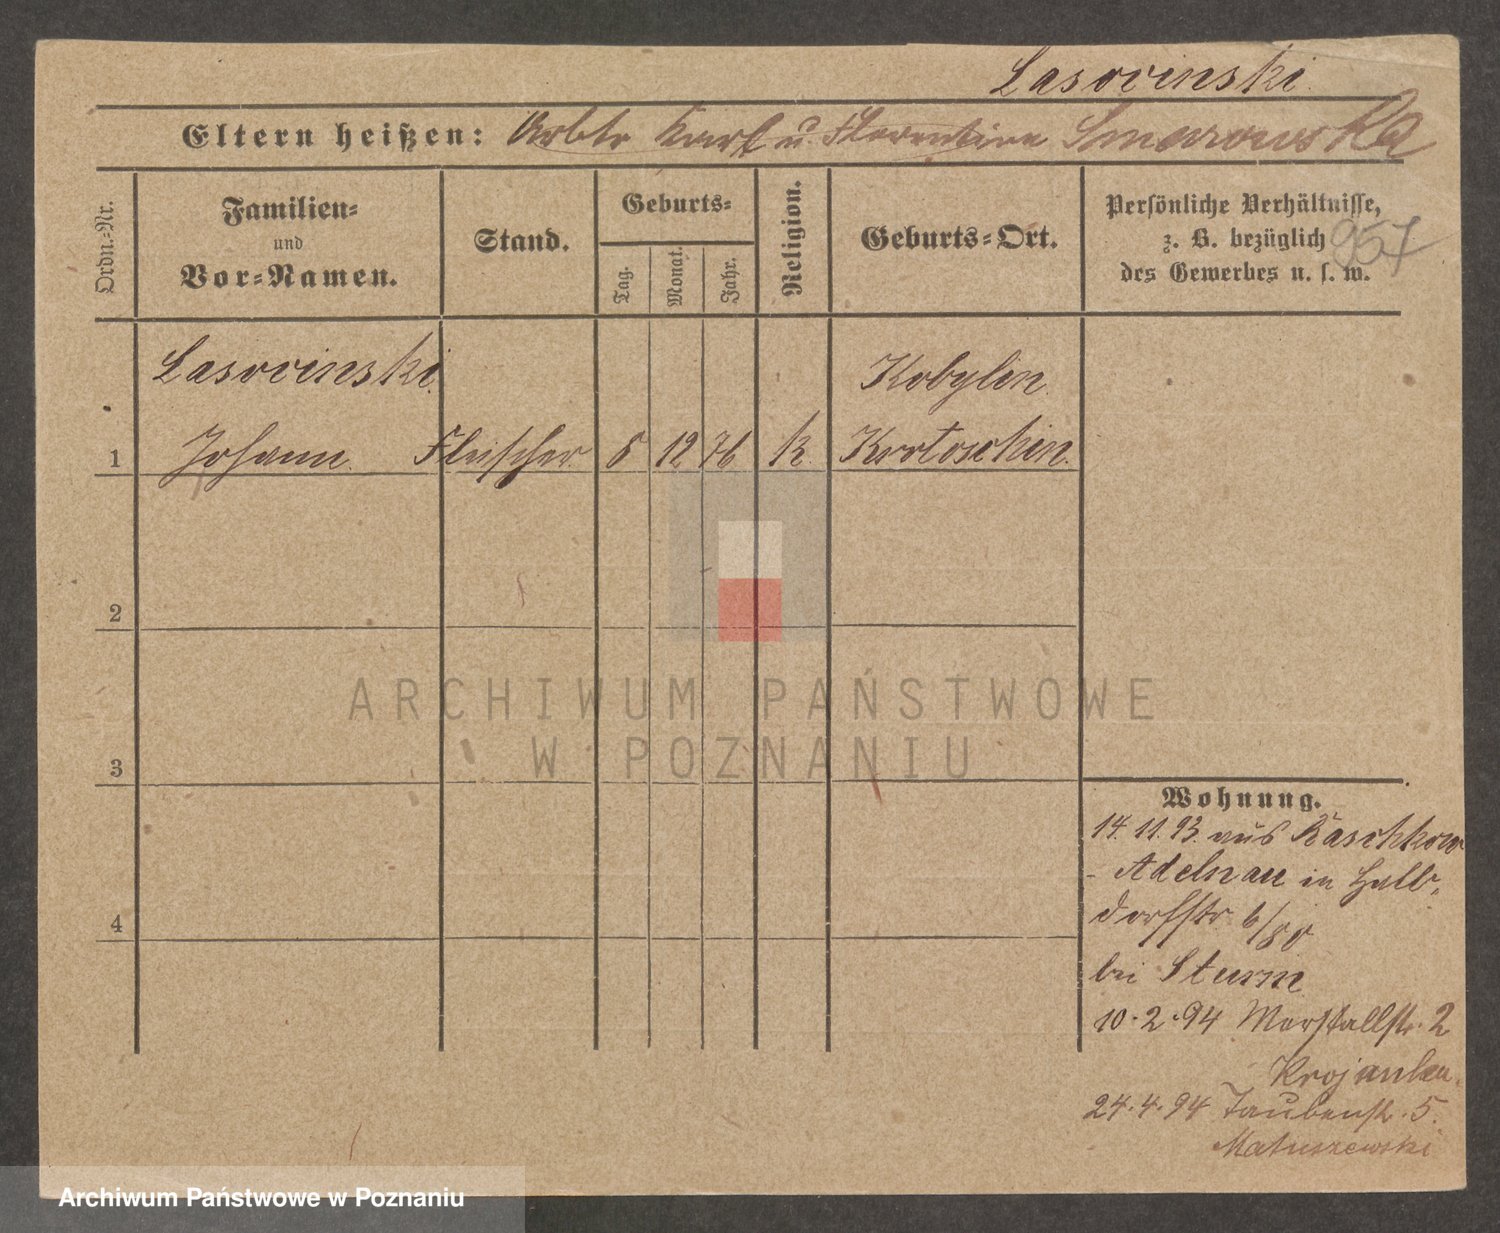 Lasovinski.
Eltern heißen: Arbtr Karl u. Florentine Smarowska
Ordn.=Nr.
Familien=
und
Vor=Namen.
Stand.
Geburts=
Tag.
Monat.
Jahr.
Religion.
Geburts=Ort.
Persönliche Verhältnisse,
z. B. bezüglich
des Gewerbes u. s. w.
957
Lasovinski
Kobylin
1 Johann Fleischer 8 12 76 k. Krotoschin.
2
3
4
Wohnung.
14.11.93. aus Raschkow
- Adelnau in Halb-
dorfstr. 6/
bei Sturm
10.2.94 Marstallstr. 2
Krojanker.
24.4.94 Taubenstr. 5.
Matuszewski
ARCHIWUM PAŃSTWOWE
W POZNANIU
Archiwum Państwowe w Poznaniu